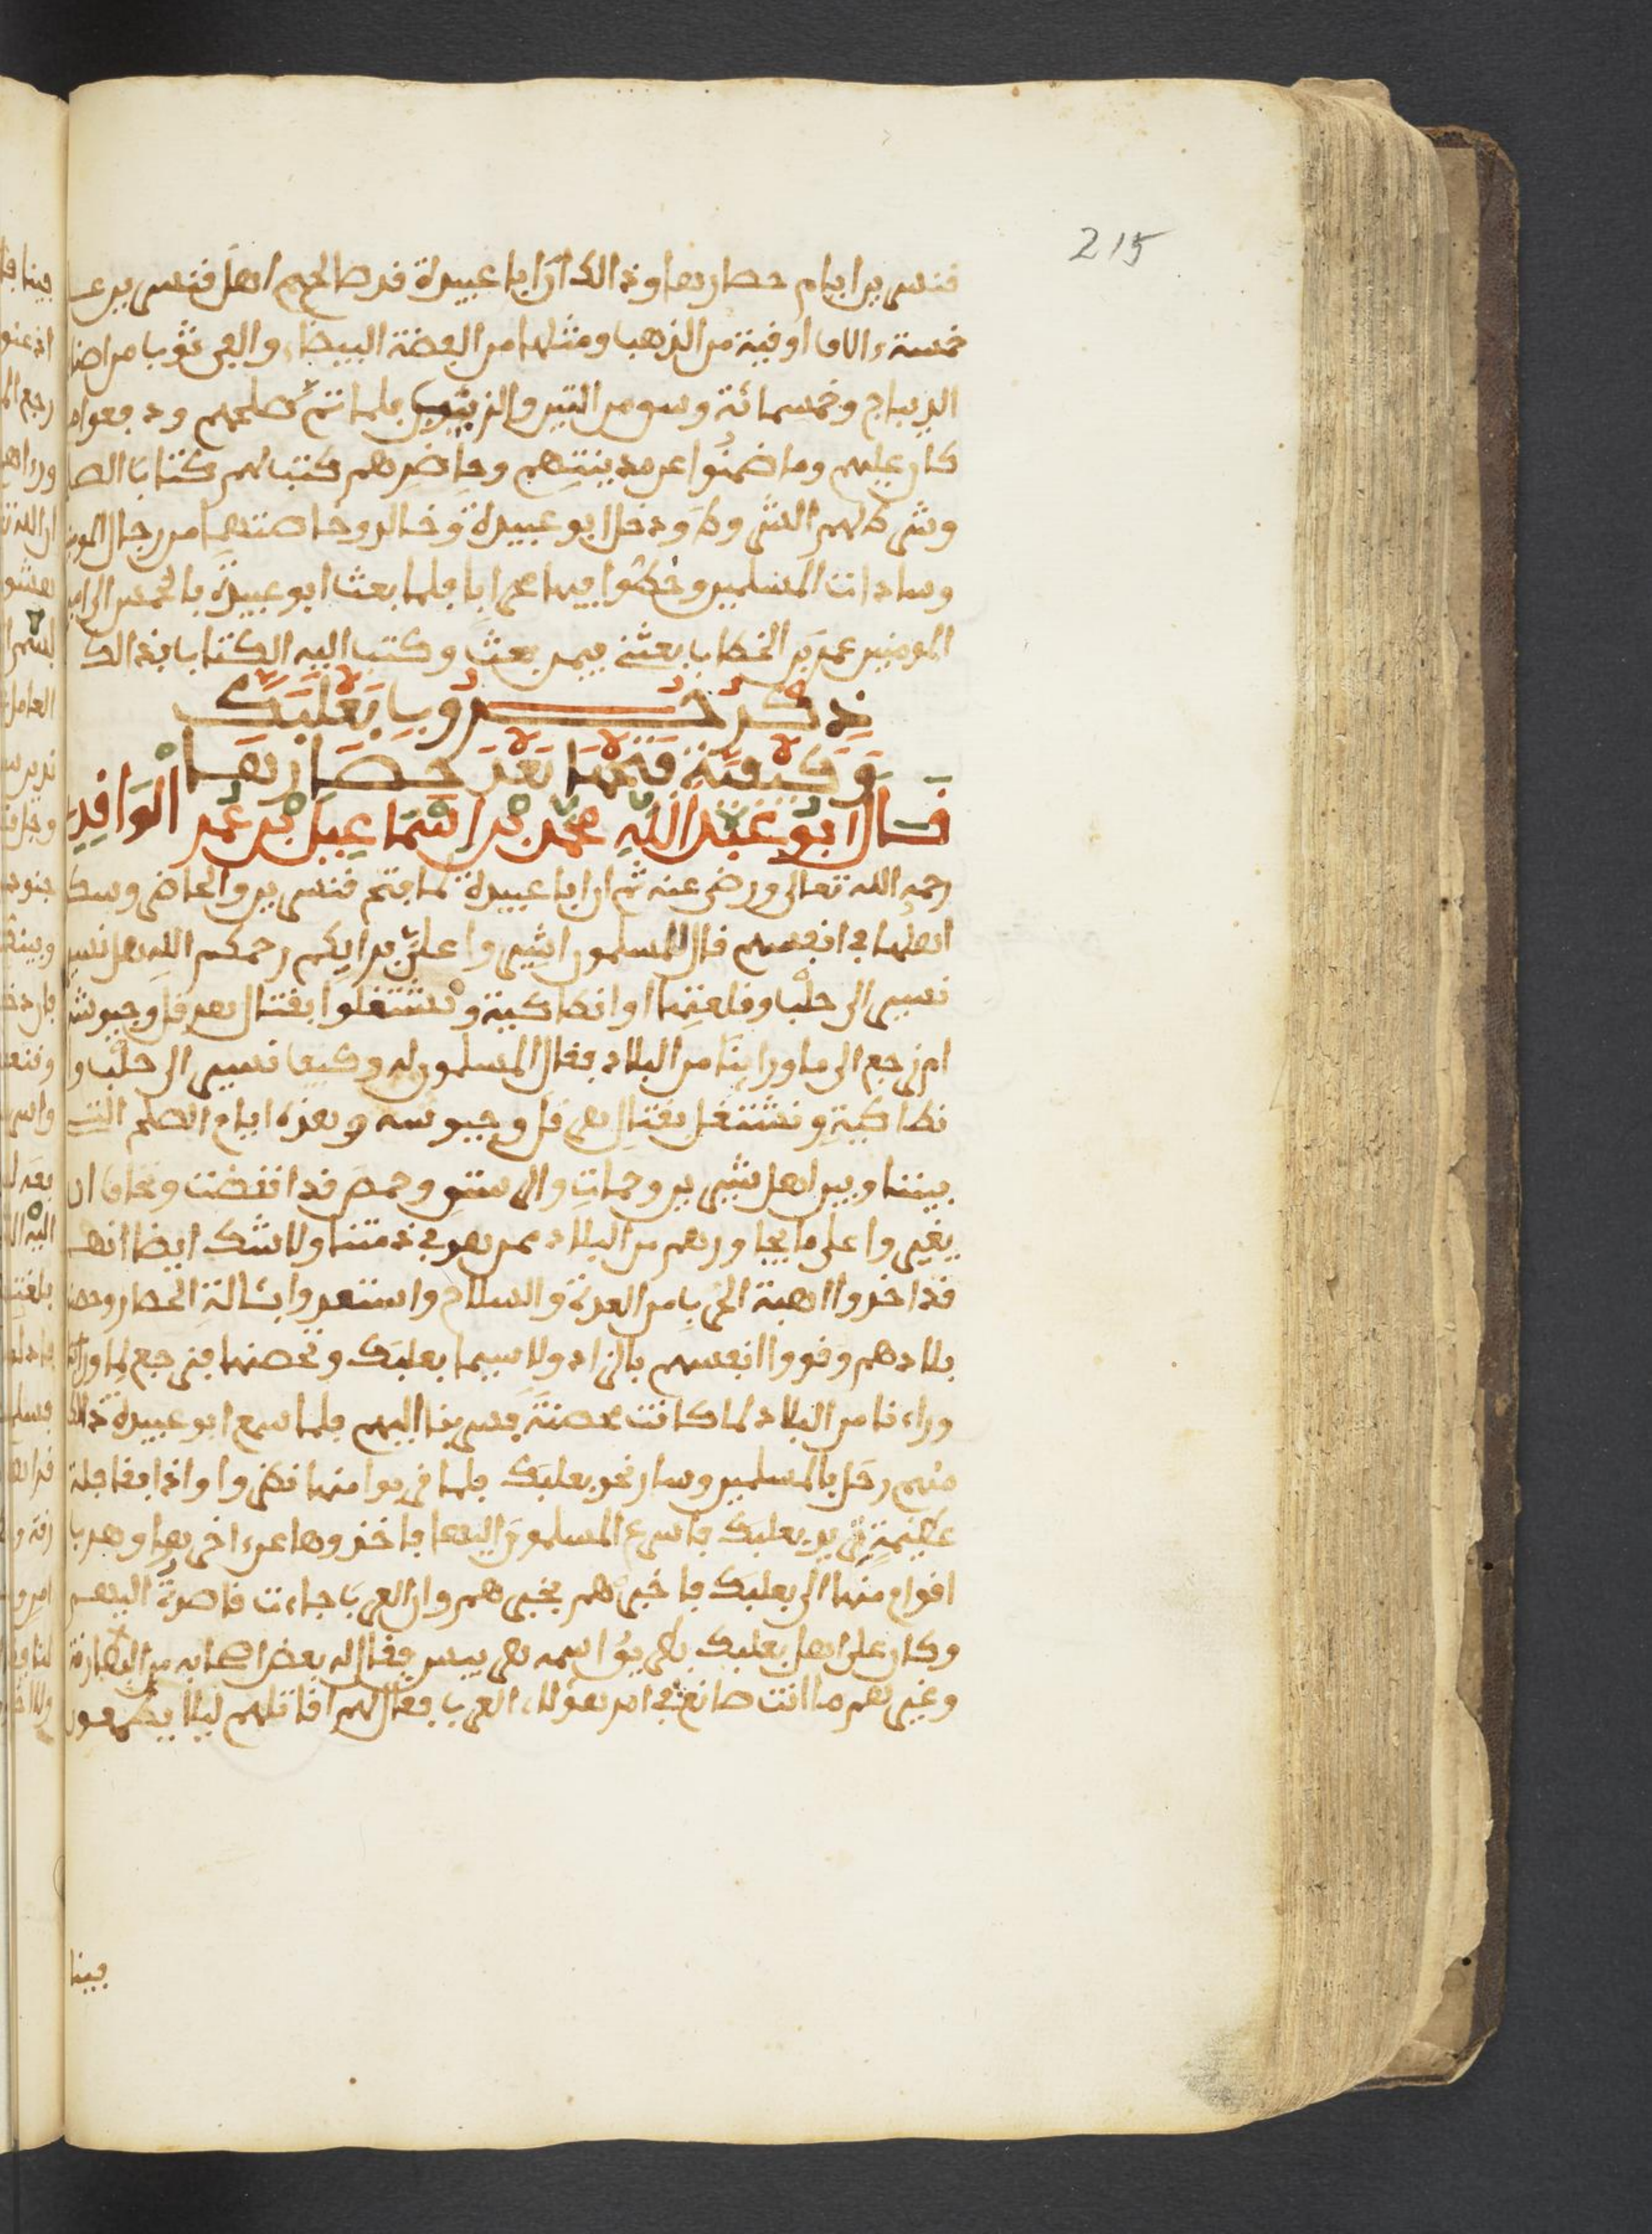 215
قنسرين ايام حصارها وذالك ان ابا عبيدة قد صالحهم اهل قنسرين على
خمسة ءالاف اوقية من الذهب ومثلها من الفضة البيضاء والفي ثوب من اصناف
الديباج وخمسمائة وسو من التين والزيتون فلما تم صلحهم ودفعوا ما
كان عليهم وما ضمنوا عن مدينتهم وحاضرهم كتب لهم كتاب الصلح
وشرط لهم الشروط ودخل ابو عبيدة وخالد وخاصتهما من رجال
وسادات المسلمين وخطوا فيها محرابا فلما بعث ابو عبيدة بالخمس الى امير
المومنين عمر بن الخطاب بعثني فيمن بعث وكتب اليه الكتاب بذالك
ذكر حروب بعلبك
وكيفية فتحها بعد حصارها
قال ابو عبد الله محمد بن اسماعيل بن عمر الواقدي
رحمه الله تعالى ورضي عنه ثم ان ابا عبيدة لما فتح قنسرين والحاضر
اهلها في انفسهم قال للمسلمون اشيروا علي برايكم رحمكم الله هل نسير
نسير الى حلب وقلعتها او انطاكية ونشتغلوا بقتال هرقل وجيوشه
ام نرجع الى ما وراينا من البلاد فقال المسلمون له وكيف نسير الى حلب وا
نطاكية ونشتغل بقتال هرقل وجيوشه وهذه ايام الصلح التي
بيننا وبين اهل شيرين وحمات والرستن وحمص قد انقضت ونخاف ان
يغيروا على ما يجاورهم من البلاد ممن هو في ذمتنا ولا شك ايضا انهم
قد اخذوا اهبة الحرب من العدة والسلاح واستعدوا بئالة الحصار وحصنوا
بلادهم وقووا انفسهم بالزاد ولا سيما بعلبك وحصنها فنرجع لما
وراءنا من البلاد لما كانت محصنة فسر بنا اليهم فلما سمع ابو عبيدة ذالك
منهم رحل بالمسلمين وسار نحو بعلبك فلما قربوا منها نظروا واذا بقافلة
عظيمة تريد بعلبك فاسرع المسلمون اليها فاخذوها عن ءاخرها وهرب
اقوام منها الى بعلبك فاخبروهم بخبرهم وان العرب جاءت قاصدة اليهم
وكان على اهل بعلبك بطريق اسمه هربيس فقال له بعض اصحابه من البطارقة
وغيرهم ما انت صانع في امر هؤلاء العرب فقال لهم اقاتلهم ليلا يطمعون
فينا